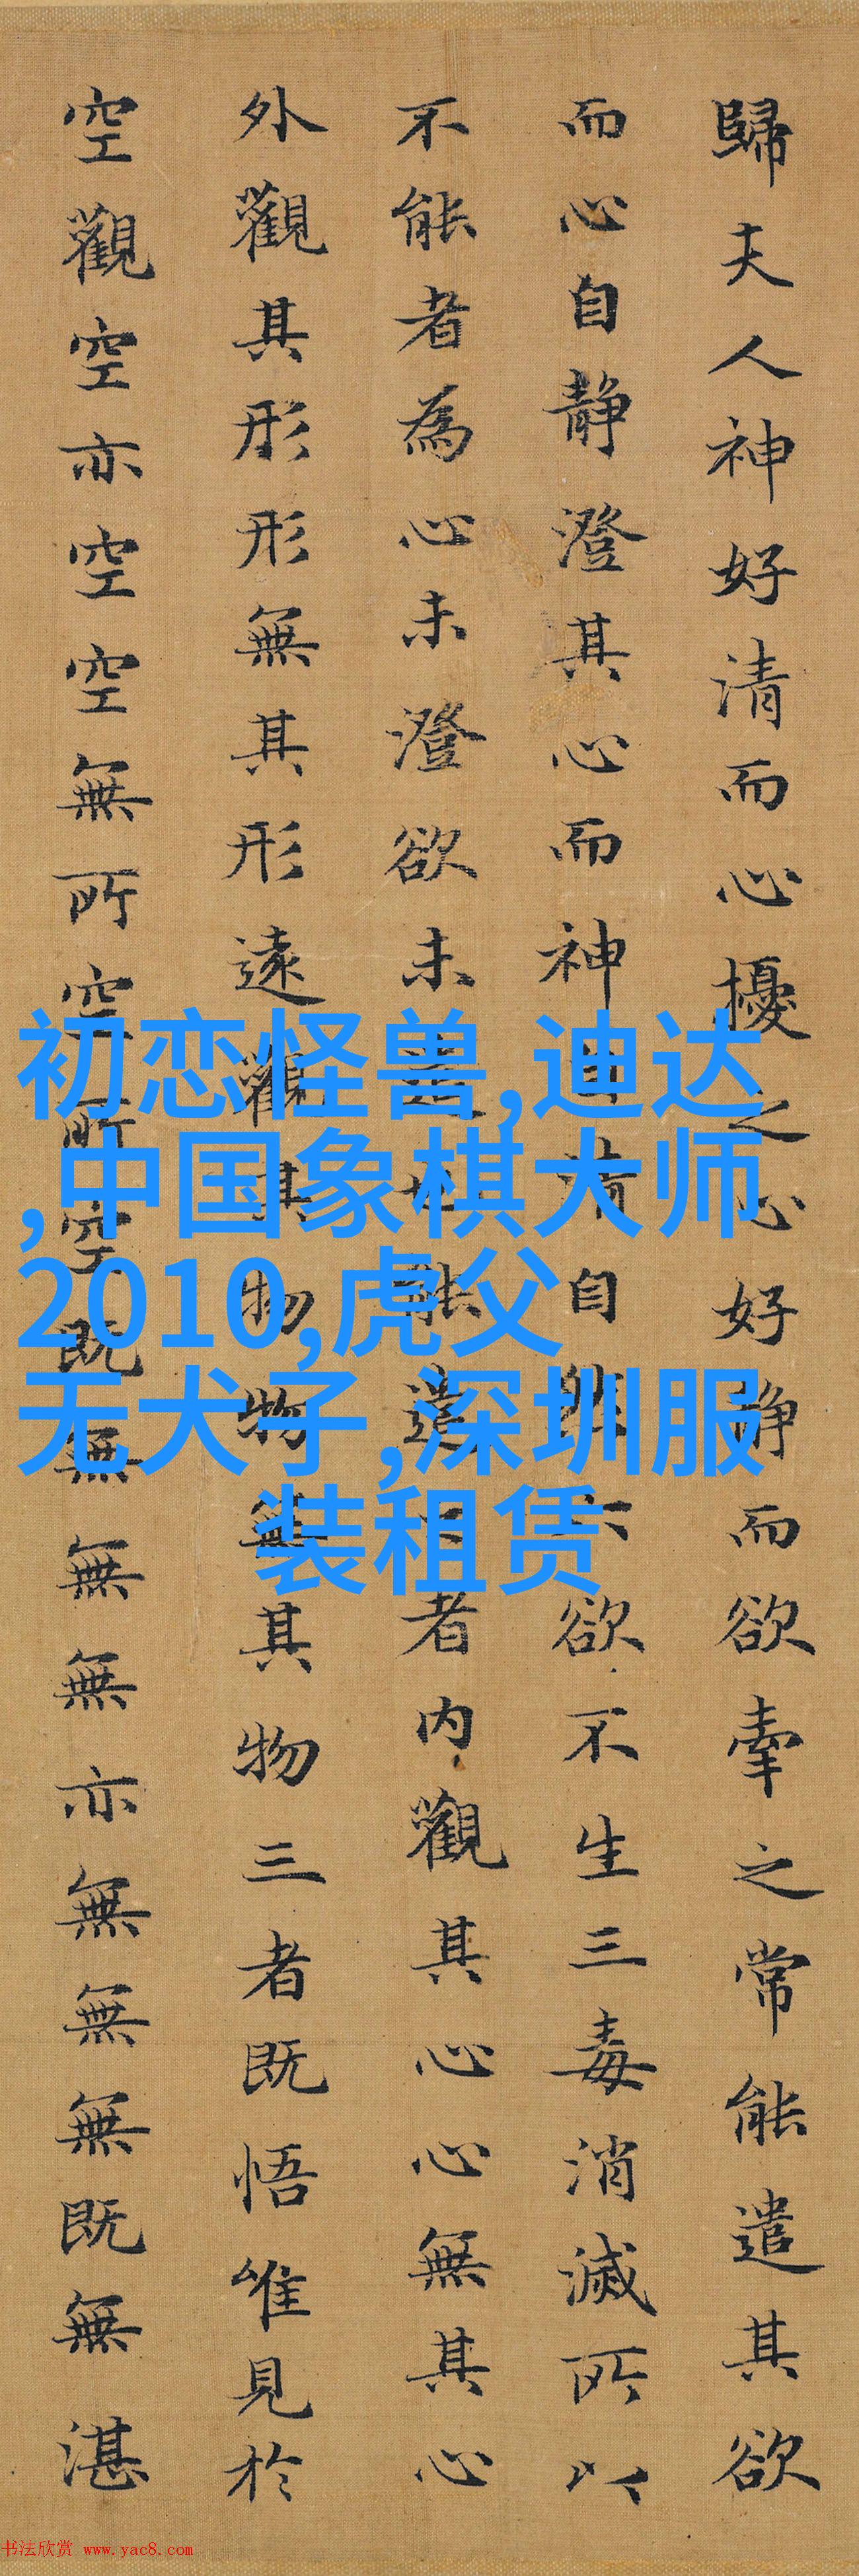 歸夫人神好清而心擾之心好静而欲牽之常能遣其欲
而心自静澄其心而神自清自然六欲不生三毒消滅所以
不能者為心未澄欲未遣也能遣之者内觀其心心無其心
外觀其形形無其形遠觀其物物無其物三者既悟唯見於
空觀空亦空空無所空所空既無無無亦無無無既無湛
初恋怪兽,迪达
,中国象棋大师
2010,虎父
无犬子,深圳服
装租赁
书法欣赏 www.yac8.com